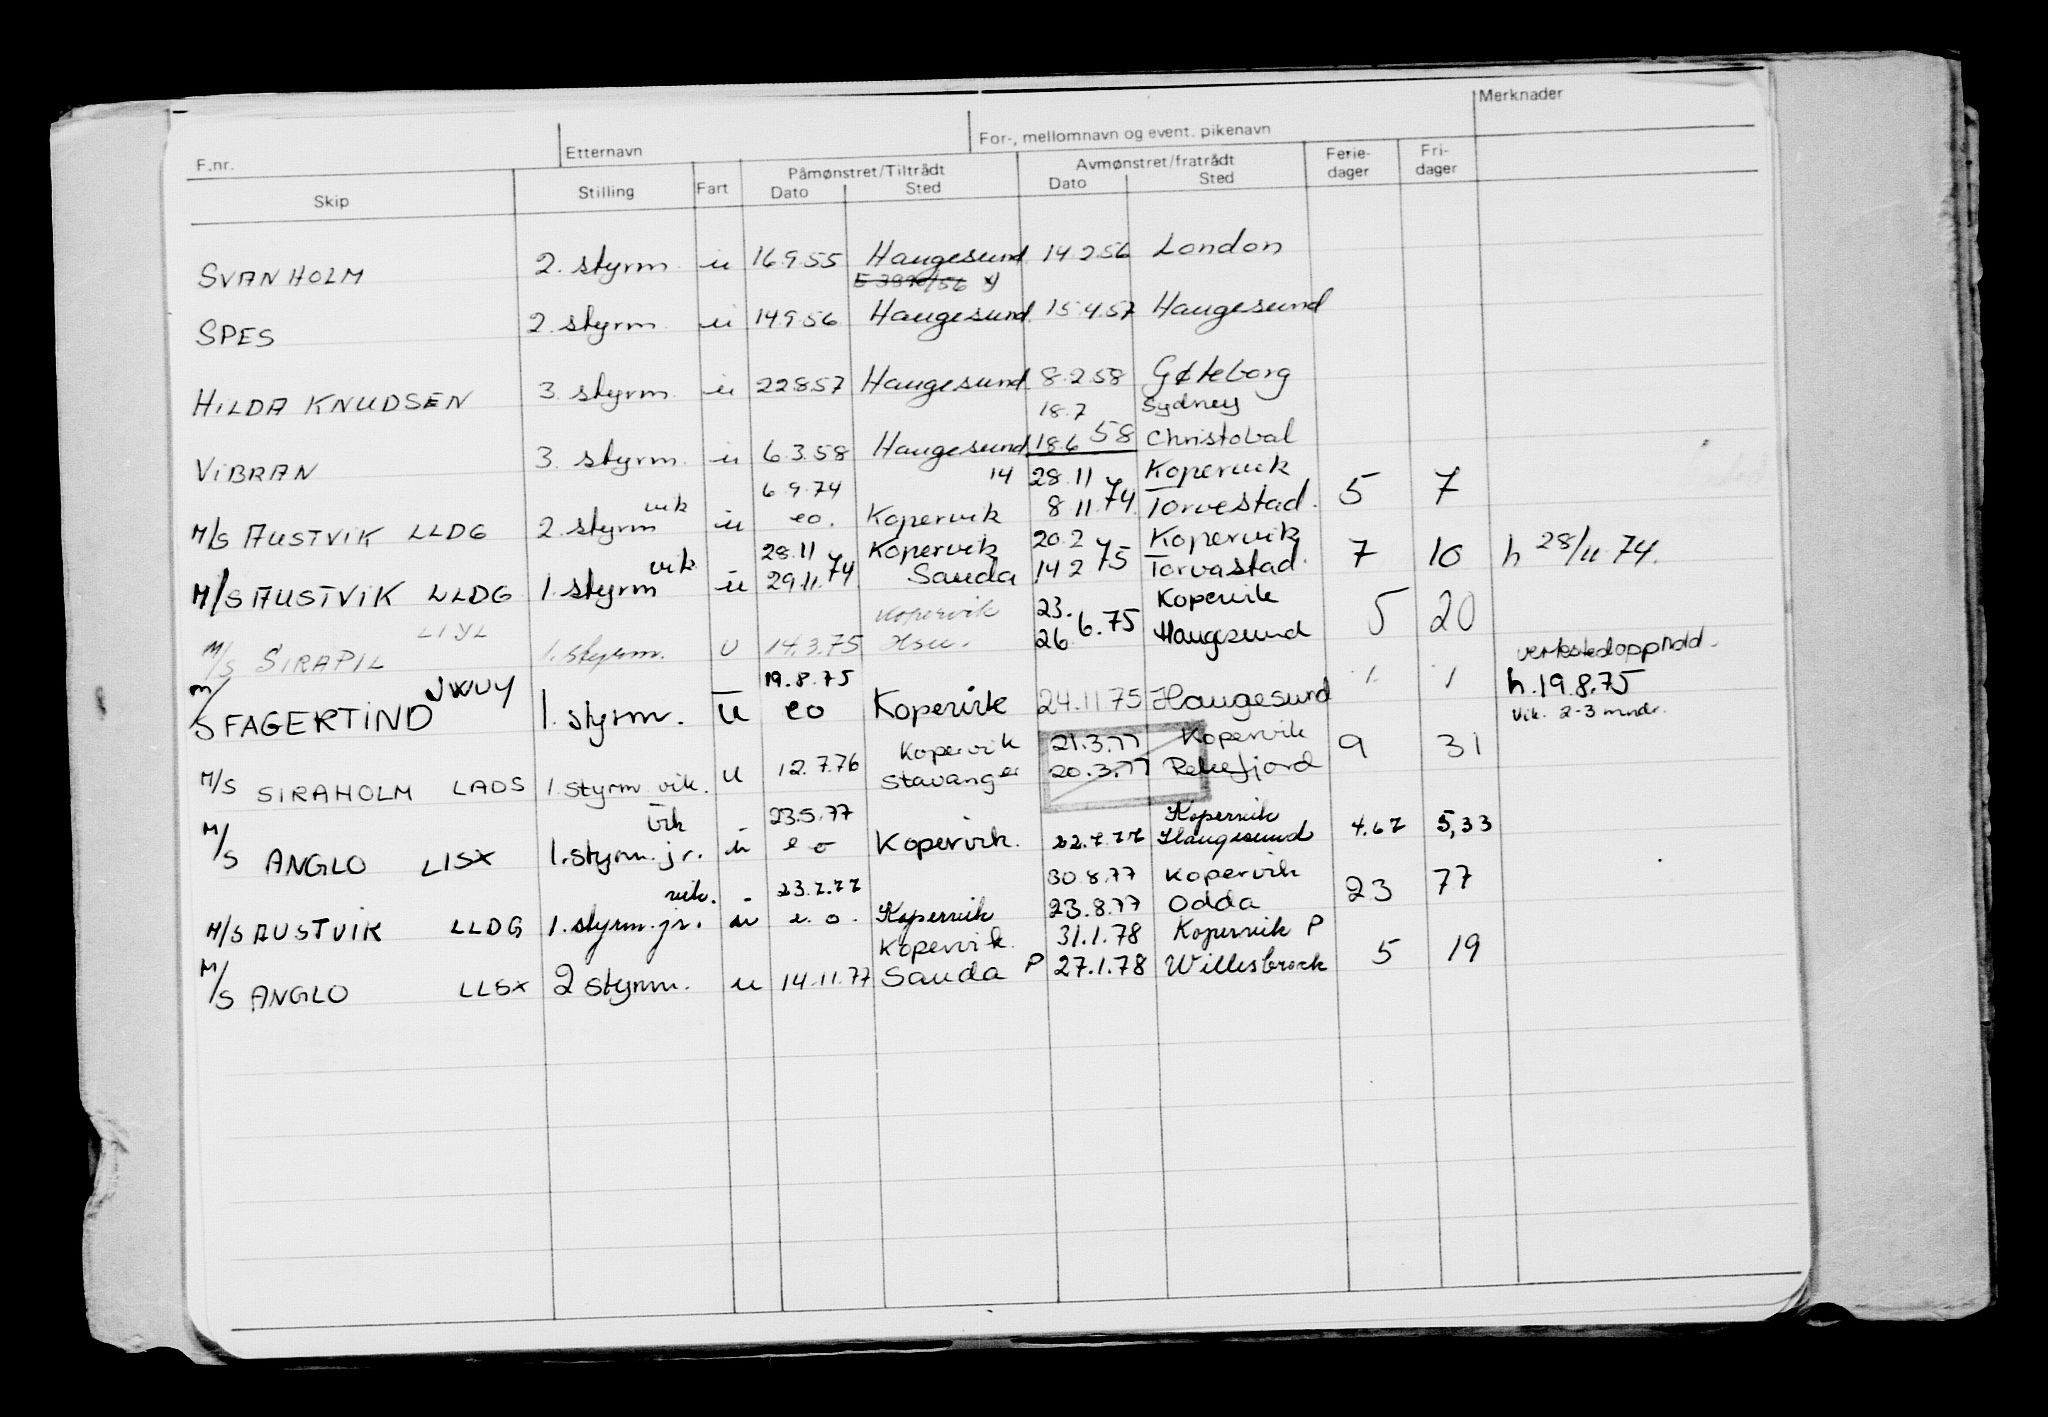 Merknader
F.nr. Etternavn For-, mellomnavn og event. pikenavn
Skip Stilling Fart Påmønstret/Tiltrådt Dato Sted Avmønstret/fratrådt Dato Sted Ferie-dager Fri-dager
SVANHOLM 2. styrm. u 16.9.55 Haugesund 14.2.56 London
SPES 2. styrm. u 14.9.56 Haugesund 15.4.57 Haugesund
HILDA KNUDSEN 3. styrm. u 22.8.57 Haugesund 8.2.58 Gøteborg
18.7 Sydney
VIBRAN 3. styrm. u 6.3.58 Haugesund 18.6 58 Christobal
vik 6.9.74 14 28.11 Kopervik
M/S AUSTVIK LLDG 2. styrm u eo. Kopervik 8.11.74. Torvestad. 5 7
vik 28.11 Kopervik 20.2 Kopervik
M/S AUSTVIK LLDG 1. styrm u 29.11.74 Sauda 14.2 75 Torvastad. 7 10 h 28/11 74.
LIYL Kopervik 23. Kopervik
M/S SIRAPIL 1. styrm. u 14.3.75 Hsu. 26.6.75 Haugesund 5 20
19.8.75 verkstedopphold.
M/S FAGERTIND JWUY 1. styrm. u eo Kopervik 24.11.75 Haugesund / / h. 19.8.75
Vik. 2-3 mndr.
Kopervik 21.3.77 Kopervik
M/S SIRAHOLM LADS 1. styrm vik. u 12.7.76 Stavanger 20.3.77 Rekefjord 9 31
vik 23.5.77 Kopervik
M/S ANGLO LISX 1. styrm. jr. u eo Kopervik. 22.7.77 Haugesund 4.67 5,33
vik. 23.7.77 30.8.77 Kopervik
M/S AUSTVIK LLDG 1. styrm. jr. u e.o. Kopervik 23.8.77 Odda 23 77
Kopervik. 31.1.78 Kopervik P
M/S ANGLO LLSX 2 styrm. u 14.11.77 Sauda P 27.1.78 Willesbroek 5 19